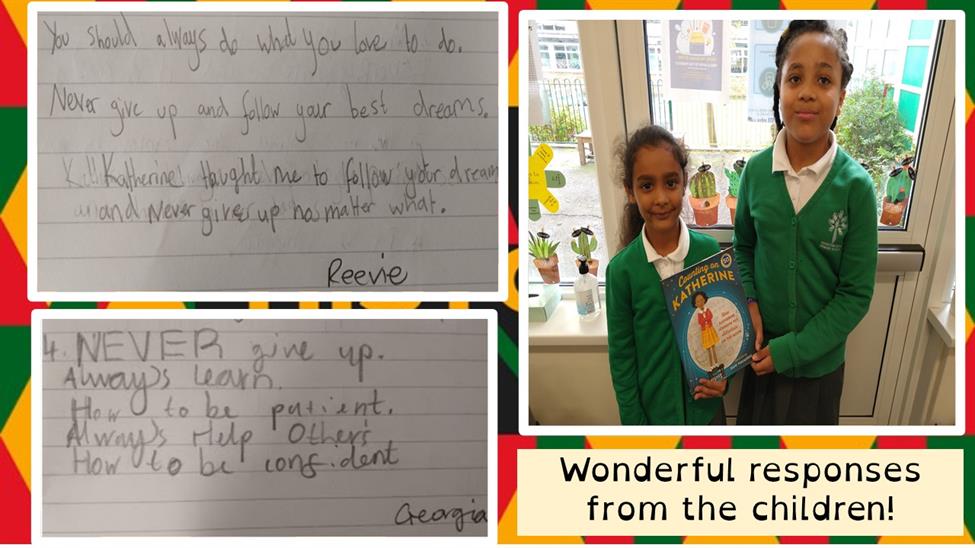 You should always do what you love to do.
Never give up and follow your best dreams.
Katherine taught me to follow your dream
and Never give up no matter what.
Reevie
4. NEVER give up.
Always learn.
How to be patient.
Always Help Other's
How to be confident
Georgia
Counting on
KATHERINE
Wonderful responses
from the children!